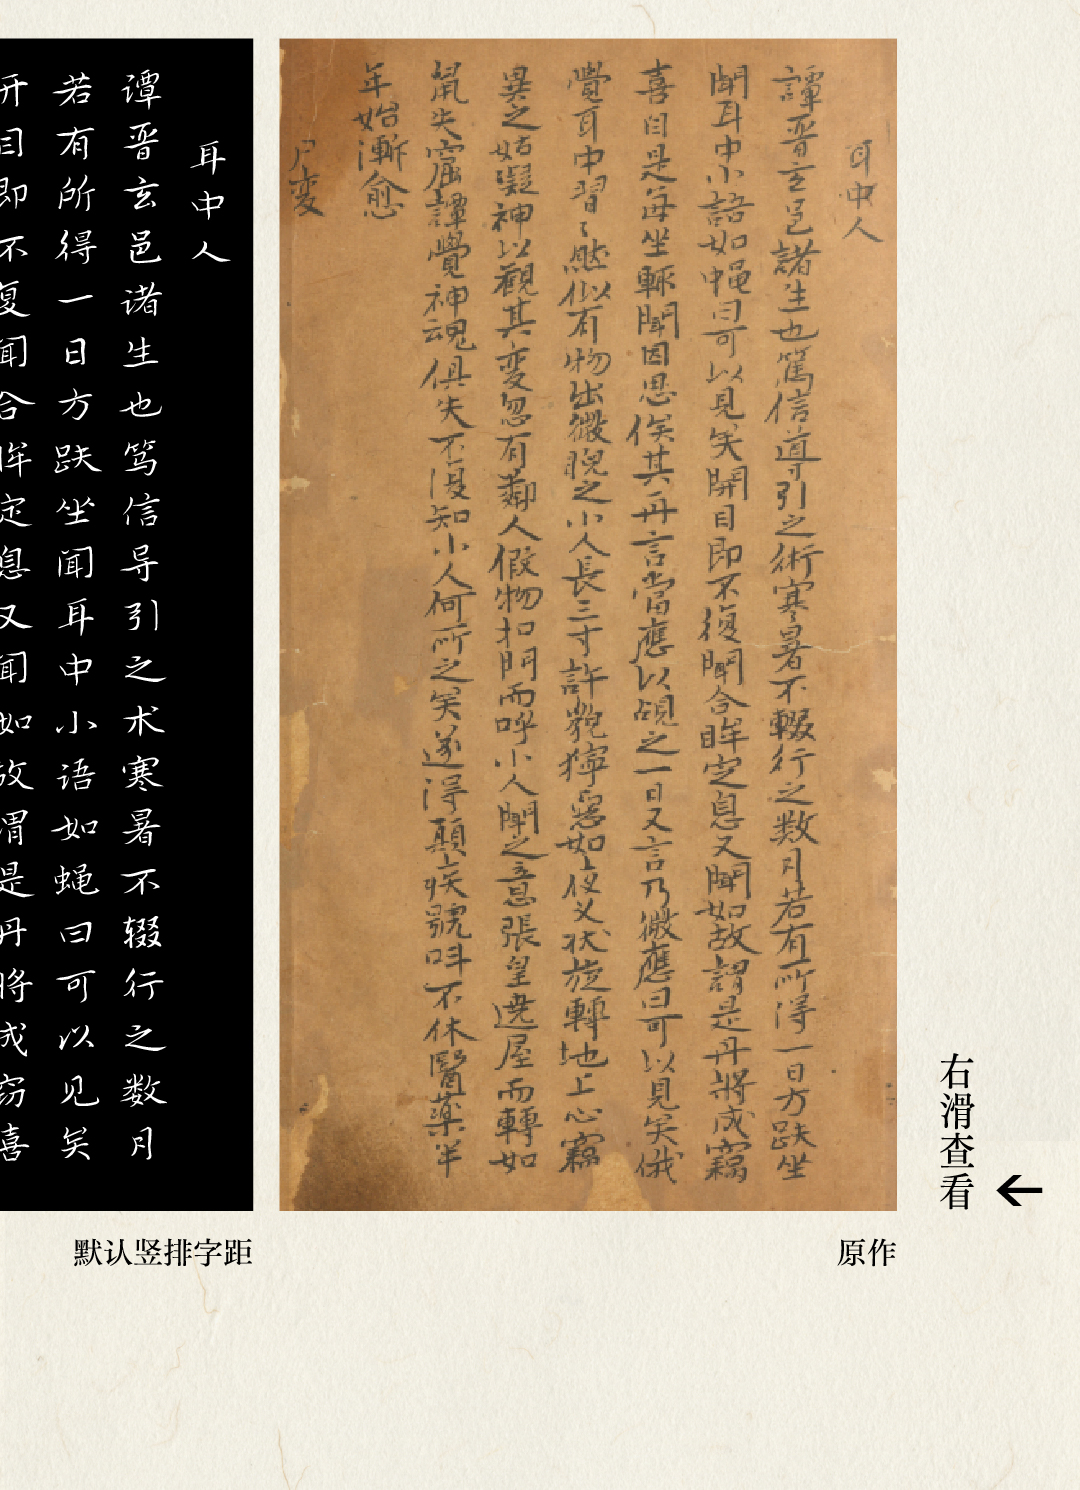 右滑查看
耳中人
譚晋玄邑諸生也篤信導引之術寒暑不輟行之数月若有所得一日方趺坐
聞耳中小語如蝇曰可以見矣開目即不復聞合眸定息又聞如故謂是丹將成竊
喜自是每坐輒聞因思俟其再言當應以覘之一日又言乃微應曰可以見矣俄
覺耳中習〻然似有物出微睨之小人長三寸許貌獰惡如夜叉状旋轉地上心竊
異之姑凝神以觀其变忽有鄰人假物扣門而呼小人聞之意張皇遶屋而轉如
鼠失窟譚覺神魂俱失不復知小人何所之矣遂得顛疾號呌不休醫藥半
年始漸愈
尸变
原作
耳中人
谭晋玄邑诸生也笃信导引之术寒暑不辍行之数月
若有所得一日方趺坐闻耳中小语如蝇曰可以见矣
开目即不复闻合眸定息又闻如故谓是丹将成窃喜
默认竖排字距